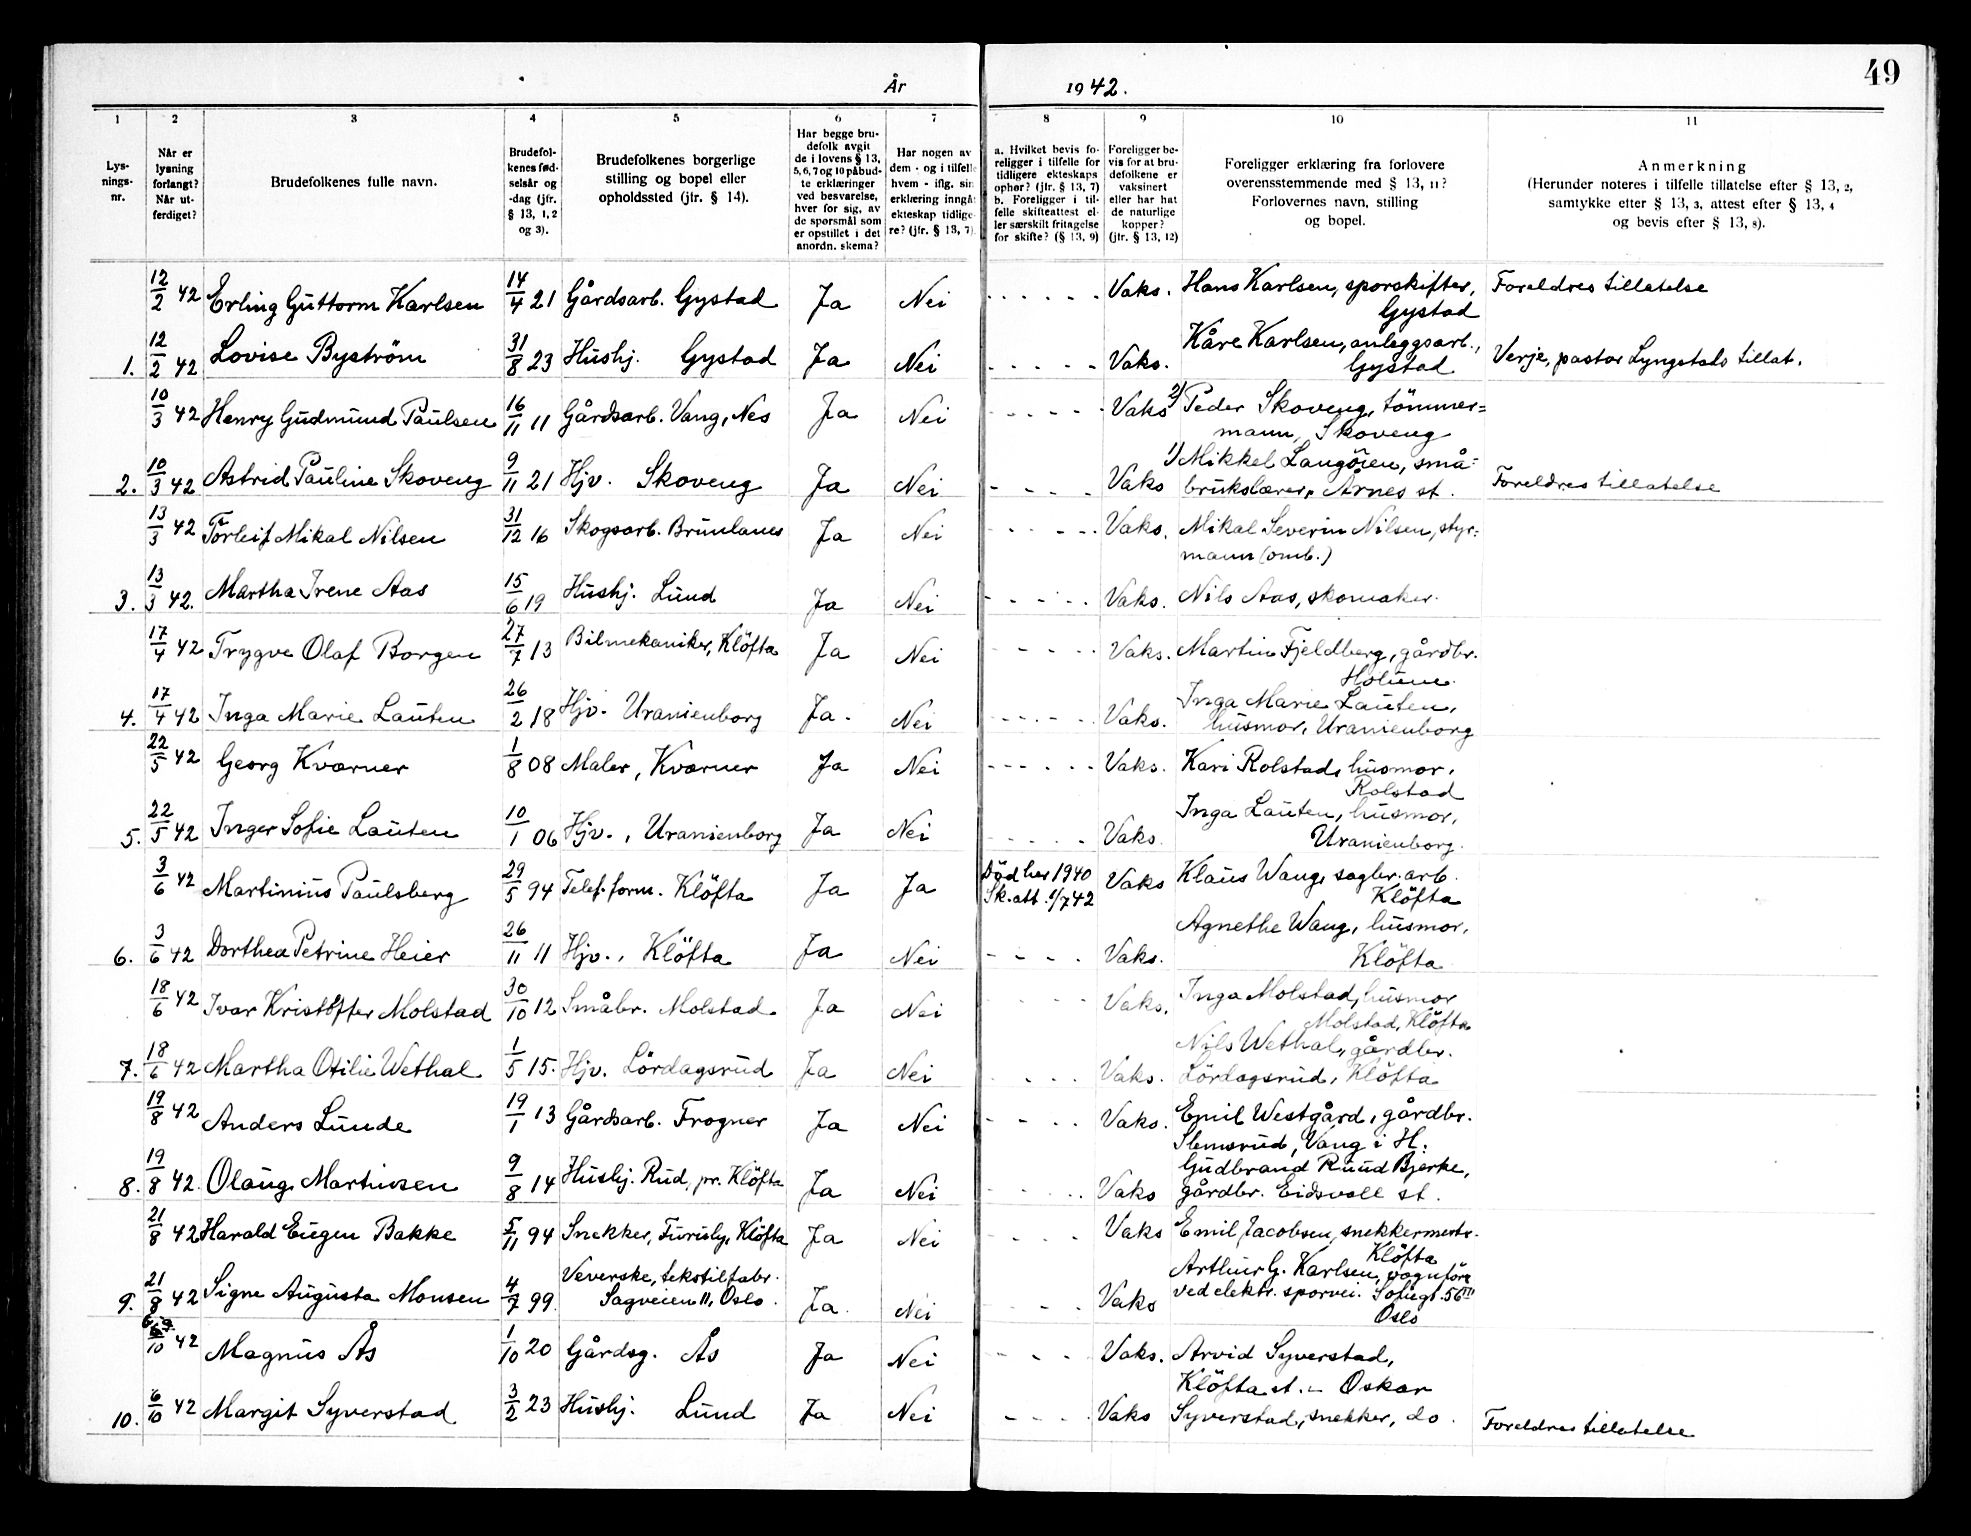 49
År 1942.
1 2 3 4 5 6 7 8 9 10 11
Lys-
nings-
nr.
Når er
lysning
forlangt?
Når ut-
ferdiget?
Brudefolkenes fulle navn.
Brudefol-
kenes fød-
selsår og
-dag (jfr.
§ 13, 1, 2
og 3).
Brudefolkenes borgerlige
stilling og bopel eller
opholdssted (jfr. § 14).
Har begge bru-
defolk avgit
de i lovens § 13,
5, 6, 7 og 10 påbud-
te erklæringer
ved besvarelse,
hver for sig, av
de spørsmål som
er opstillet i det
anordn. skema?
Har nogen av
dem - og i tilfelle
hvem - iflg. sin
erklæring inngå
ekteskap tidlige-
re? (jfr. § 13, 7)
a. Hvilket bevis fo-
religger i tilfelle for
tidligere ekteskaps
ophør? (jfr. § 13, 7)
b. Foreligger i til-
felle skifteattest el-
ler særskilt fritagelse
for skifte? (§ 13, 9)
Foreligger be-
vis for at bru-
defolkene er
vaksinert
eller har hat
de naturlige
kopper?
(jfr. § 13, 12)
Foreligger erklæring fra forlovere
overensstemmende med § 13, 11?
Forlovernes navn, stilling
og bopel.
Anmerkning
(Herunder noteres i tilfelle tillatelse efter § 13, 2,
samtykke etter § 13, 3, attest efter § 13, 4
og bevis efter § 13, 8).
12/2 42 Erling Guttorm Karlsen 14/4 21 Gårdsarb. Gystad Ja Nei - - - - - Vaks. Hans Karlsen, sporskifter, Foreldres tillatelse
Gystad
1. 12/2 42 Lovise Byström 31/8 23 Hushj. Gystad Ja Nei - - - - - Vaks. Kåre Karlsen, anleggsarb., Verje, pastor Lyngstads tillat.
Gystad
10/3 42 Henry Gudmund Paulsen 16/11 11 Gårdsarb. Vang, Nes Ja Nei - - - - - Vaks 2) Peder Skoveng, tömmer=
mann, Skoveng
2. 10/3 42 Astrid Pauline Skoveng 9/11 21 Hjv. Skoveng Ja Nei - - - - Vaks 1) Mikkel Langören, små=
brukslærer, Årnes st. Foreldres tillatelse
13/3 42 Torleif Mikal Nilsen 31/12 16 Skogsarb. Brunlanes Ja Nei - - - - - Vaks. Mikal Severin Nilsen, styr=
mann (omb.)
3. 13/3 42. Martha Irene Aas 15/6 19 Hushj. Lund Ja Nei - - - - - Vaks. Nils Aas, skomaker.
17/4 42 Trygve Olaf Borgen 27/7 13 Bilmekaniker, Klöfta Ja Nei - - - - Vaks. Martin Fjeldberg, gårdbr.
Holum.
4. 17/4 42 Inga Marie Lauten 26/2 18 Hjv. Uranienborg Ja. Nei - - - - - Vaks. Inga Marie Lauten,
husmor, Uranienborg
22/5 42 Georg Kværner 1/8 08 Maler, Kværner Ja Nei - - - - - Vaks. Kari Rolstad, husmor,
Rolstad
5. 22/5 42 Inger Sofie Lauten 10/1 06 Hjv., Uranienborg Ja Nei - - - - Vaks. Inga Lauten, husmor,
Uranienborg.
3/6 42 Martinius Paulsberg 29/5 94 Telef.form. Klöfta Ja Ja Död her 1940 Vaks Klaus Wang, sagbr.arb.
Sk.att. 1/7 42 Klöfta
6. 3/6 42 Dorthea Petrine Heier 26/11 11 Hjv., Klöfta Ja Nei - - - - Vaks. Agnethe Wang, husmor,
Klöfta
18/6 42 Ivar Kristoffer Molstad 30/10 12 Småbr. Molstad Ja Nei - - - - Vaks. Inga Molstad, husmor
Molstad, Klöfta
7. 18/6 42 Martha Otilie Wethal 1/5 15. Hjv. Lördagsrud Ja Nei - - - - Vaks. Nils Wethal, gårdbr.
Lördagsrud, Klöfta
19/8 42 Anders Lunde 19/1 13 Gårdsarb. Frogner Ja Nei - - - - Vaks. Emil Westgård, gårdbr.
Slemsrud, Vang i H.
8. 19/8 42. Olaug Martinsen 9/8 14 Hushj. Rud, pr. Klöfta Ja Nei - - - - Vaks Gudbrand Ruud Bjerke,
gårdbr. Eidsvoll st.
21/8 42 Harald Eugen Bakke 5/11 94 Snekker, Furuly, Klöfta Ja Nei - - - - Vaks Emil Jacobsen, snekkermestr.
Klöfta
9. 21/8 42 Signe Augusta Monsen 4/7 99. Veverske, tekstilfabr. Ja. Nei - - - Vaks Arthur G. Karlsen, vognförer
Sagveien 11, Oslo. ved elektr. sporvei. Sofiegt. 56 III
Oslo
6/10 42 Magnus Ås 1/10 20 Gårdsg. Ås Ja Nei - - - Vaks. Arvid Syverstad,
Klöfta st. - Oskar
10. 6/10 42 Margit Syverstad 3/2 23 Hushj. Lund Ja Nei - - - - Vaks Syverstad, snekker, do. Foreldres tillatelse